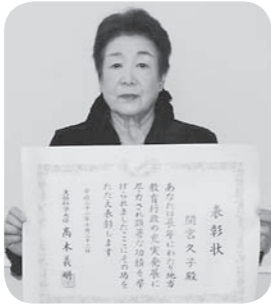 表彰状
間宮久子殿
あなたは長年にわたり地方
教育行政の充実発展に
尽力され顕著な功績を挙
げられましたここにその功を
たたえ表彰します
平成二十二年十月二十二日
文部科学大臣 髙木義明